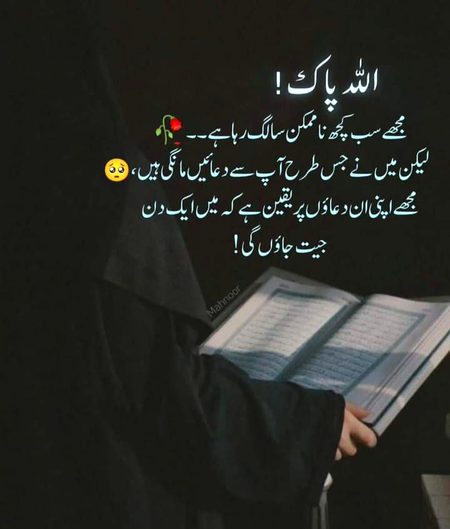 اللہ پاک !
مجھے سب کچھ ناممکن سا لگ رہا ہے۔۔ 🥀
لیکن میں نے جس طرح آپ سے دعائیں مانگی ہیں، 🥺
مجھے اپنی ان دعاؤں پر یقین ہے کہ میں ایک دن
جیت جاؤں گی !
Mahnoor